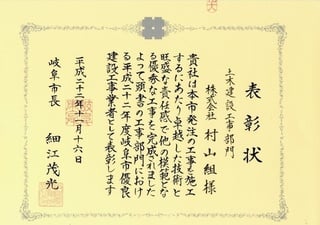 表彰状
土木建設工事部門
株式会社 村山組様
貴社は本市発注の工事を施工
するにあたり卓越した技術と
旺盛な責任感で他の模範とな
る優秀な工事を完成されました
よって頭書の工事部門におけ
る平成二十二年度岐阜市優良
建設工事業者として表彰します
平成二十二年十一月十六日
岐阜市長 細江茂光